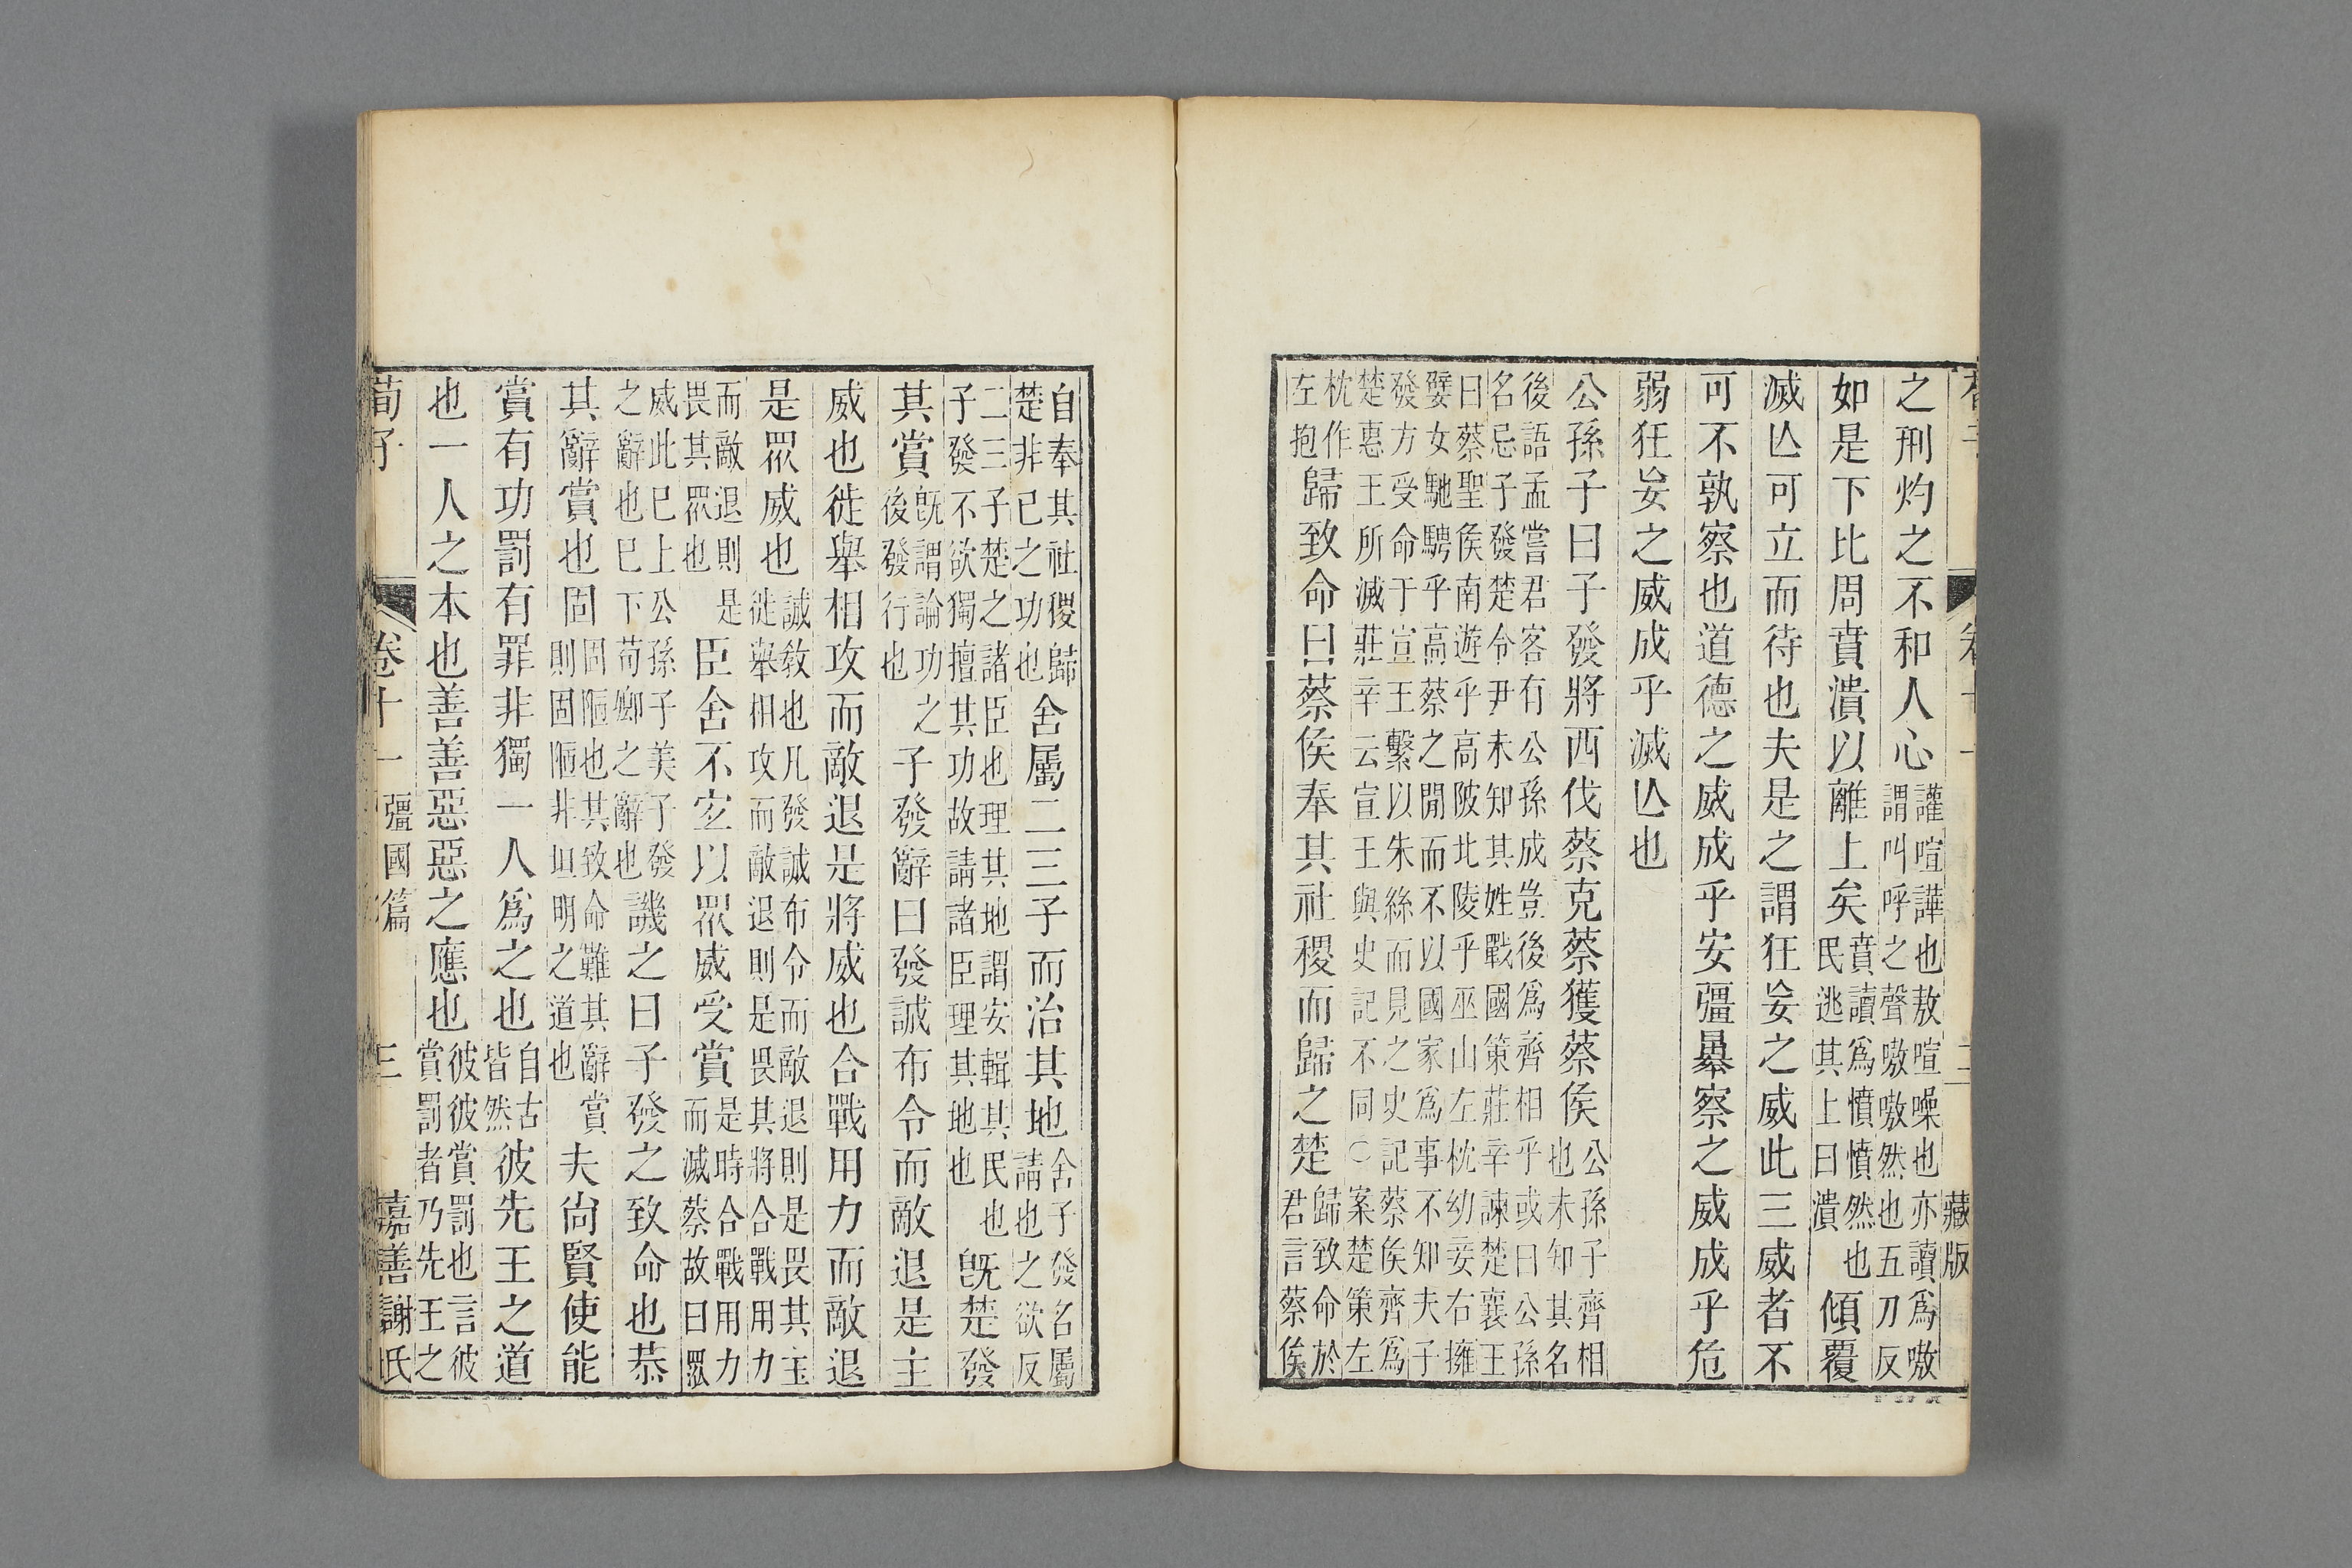 藏版
之刑灼之不和人心讙喧譁也敖喧噪也亦讀爲嗷謂叫呼之聲嗷嗷然也五刀反
如是下比周賁潰以離上矣賁讀爲憤憤然也民逃其上曰潰傾覆
滅亾可立而待也夫是之謂狂妄之威此三威者不
可不孰察也道德之威成乎安彊㬥察之威成乎危
弱狂妄之威成乎滅亾也
公孫子曰子發將西伐蔡克蔡獲蔡侯公孫子齊相也未知其名
後語孟嘗君客有公孫成豈後爲齊相乎或曰公孫
名忌子發楚令尹未知其姓戰國策莊辛諫楚襄王
曰蔡聖侯南遊乎高陂北陵乎巫山左枕幼妾右擁
嬖女馳騁乎高蔡之閒而不以國家爲事不知夫子
發方受命于宣王繫以朱絲而見之史記蔡侯齊爲
楚惠王所滅莊辛云宣王與史記不同○案楚策左
枕作左抱歸致命曰蔡侯奉其社稷而歸之楚歸致命於君言蔡侯
自奉其社稷歸楚非已之功也舍屬二三子而治其地舍子發名屬請也之欲反
二三子楚之諸臣也理其地謂安輯其民也子發不欲獨擅其功故請諸臣理其地也旣楚發
其賞旣謂論功之後發行也子發辭曰發誡布令而敵退是主
威也徙舉相攻而敵退是將威也合戰用力而敵退
是眾威也誠敎也凡發誠布令而敵退則是畏其主徙舉相攻而敵退則是畏其將合戰用力
而敵退則是畏其眾也臣舍不宐以眾威受賞是時合戰用力而滅蔡故曰眾
威此已上公孫子美子發之辭也巳下荀卿之辭也譏之曰子發之致命也恭
其辭賞也固固陋也其致命難其辭賞則固陋非坦明之道也夫尙賢使能
賞有功罰有罪非獨一人爲之也自古皆然彼先王之道
也一人之本也善善惡惡之應也彼彼賞罰也言彼賞罰者乃先王之
荀子 卷十一 彊國篇 三 嘉善謝氏